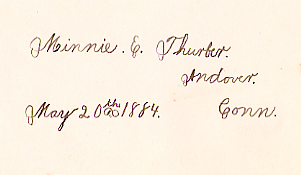 Minnie. E. Thurber.
Andover.
May 20th 1884. Conn.